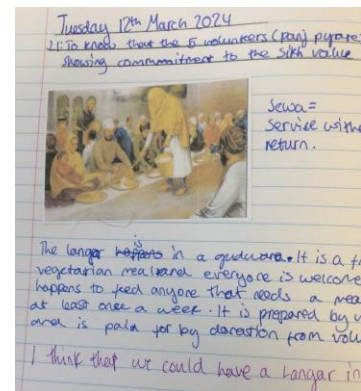 Tuesday 12th March 2024
L1: To know that the 5 volunteers (panj pyare)
showing commitment to the Sikh value
Sewa=
Service with
return.
The langar is in a gudwara. It is a f
vegetarian meal and everyone is welcome
happens to feed anyone that needs a mea
at least once a week. It is prepared by v
and is paid for by donation from volu
I think that we could have a Langar in